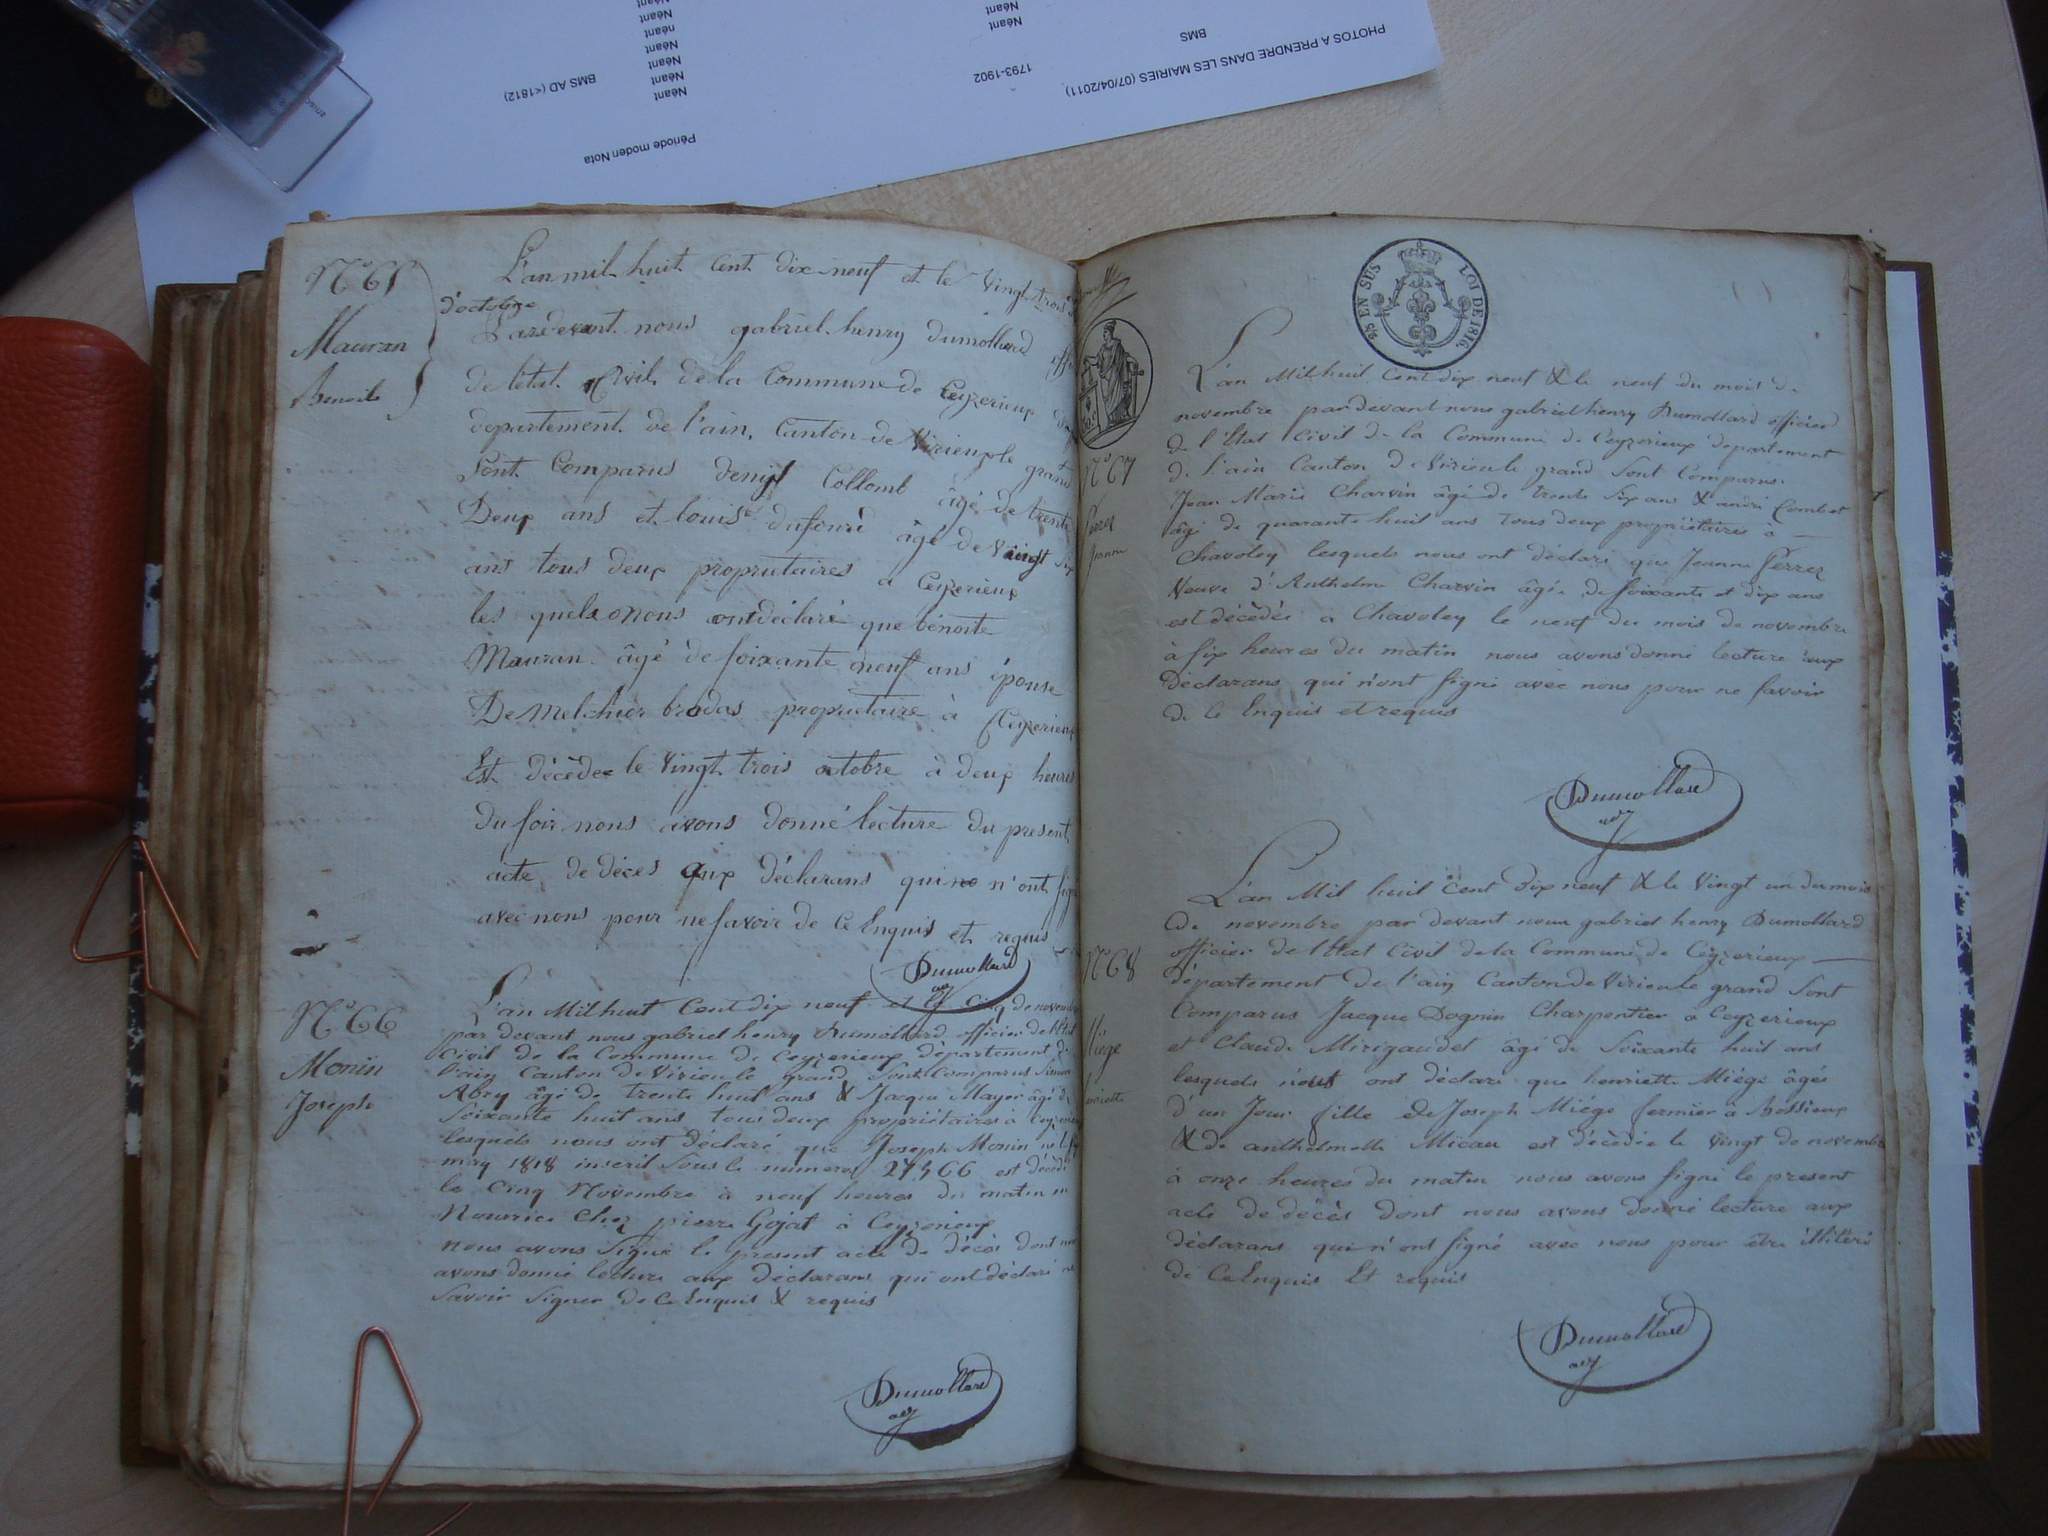 PHOTOS A PRENDRE DANS LES MAIRIES (07/04/2011)
BMS
1793-1902
Néant
Néant
BMS AD (<1812)
Néant
Néant
Néant
Néant
néant
Néant
Période moden Nota
N° 65
Mauran
Benoite
L'an mil huit Cent dix neuf et le vingt trois
d'octobre
Pardevant nous gabriel henry dumollard offi
de l'état Civil de la Commune de Ceyzerieux
departement de l'ain, Canton de Virieu le grand
Sont Comparus denis Collomb âgé de trente
Deux ans et louis dufour âgé de vingt six
ans tous deux proprietaires a Ceyzerieux
les quels nous ont déclaré que bénoite
Mauran âgé de soixante neuf ans épouse
De Melchior brodas proprietaire à Ceyzerieux
Est décédée le vingt trois octobre à deux heures
du soir nous avons donné lecture du present
acte de décès aux déclarans qui n'ont signé
avec nous pour ne savoir de Ce Enquis et requis
Dumollard
adj
N° 66
Monin
Joseph
L'an Mil huit Cent dix neuf et le Cinq de novembre
par devant nous gabriel henry Dumollard officier de l'état
Civil de la Commune de Ceyzerieux département de
l'ain Canton de Virieu le grand Sont Comparus Simon
Abry âgé de trente huit ans & Jacque Mayer âgé de
Soixante huit ans tous deux propriétaires à Ceyzerieux
lesquels nous ont déclaré que Joseph Monin né le
may 1818 inscrit sous le numero 27566 est décédé
le Cinq Novembre à neuf heures du matin en
Nourrice Chez pierre Gojat à Ceyzerieux
nous avons Signé le present acte de décès dont nous
avons donné lecture aux déclarans qui ont déclaré ne
Savoir Signer de Ce Enquis & requis
Dumollard
adj
EN SUS
LOI DE 1816.
N° 67
Perrez
Jeanne
L'an Mil huit Cent dix neuf & le neuf du mois de
novembre par devant nous gabriel henry Dumollard officier
de l'État Civil de la Commune de Ceyzerieux departement
de l'ain Canton de Virieu le grand Sont Comparus
Jean Marie Charvin âgé de trente Six ans & andré Combet
âgé de quarante huit ans tous deux propriétaires à
Chavoley lesquels nous ont déclaré que Jeanne Perrez
Veuve d'Anthelme Charvin âgée de soixante et dix ans
est décèdée a Chavoley le neuf du mois de novembre
à six heures du matin nous avons donné lecture aux
Déclarans qui n'ont signé avec nous pour ne savoir
de Ce Enquis et requis
Dumollard
adj
N° 68
Miège
henriette
L'an Mil huit Cent Dix neuf & le Vingt un du mois
de novembre par devant nous gabriel henry Dumollard
officier de l'État Civil de la Commune de Ceyzerieux
département de l'ain Canton de Virieu le grand Sont
Comparus Jacque Dognin Charpentier à Ceyzerieux
et Claude Mirigaudet âgé de Soixante huit ans
lesquels nous ont déclaré que henriette Miége âgée
d'un Jour fille de Joseph Miége fermier à Bossieux
& de anthelmette Micau est décèdée le vingt de novembre
à onze heures du matin nous avons signé le present
acte de décès dont nous avons donné lecture aux
déclarans qui n'ont signé avec nous pour être illitéré
de Ce Enquis Et requis
Dumollard
adj